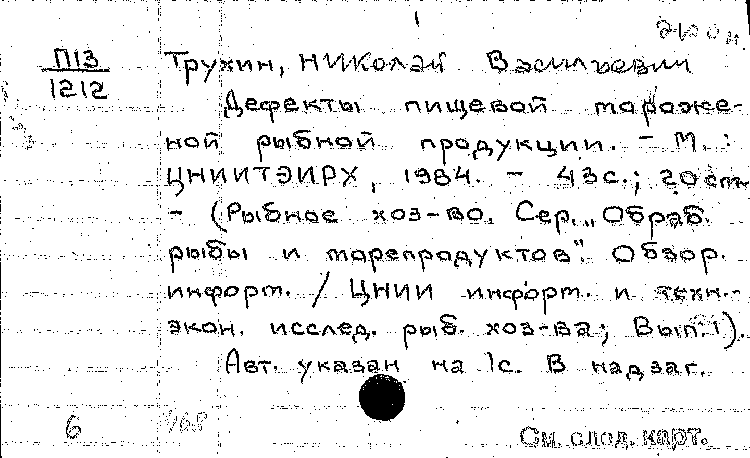 П13
1212
Трухин, Николай Васильевич
Дефекты пищевой мороже-
ной рыбной продукции. – М. :
ЦНИИТЭИРХ, 1984. – 43с.; 20см.
– (Рыбное хоз-во. Сер. „Обраб.
рыбы и морепродуктов". Обзор.
информ. / ЦНИИ информ. и техн.-
экон. исслед. рыб. хоз-ва; Вып. 1).
Авт. указан на 1с. В надзаг.
6
См. след. карт.